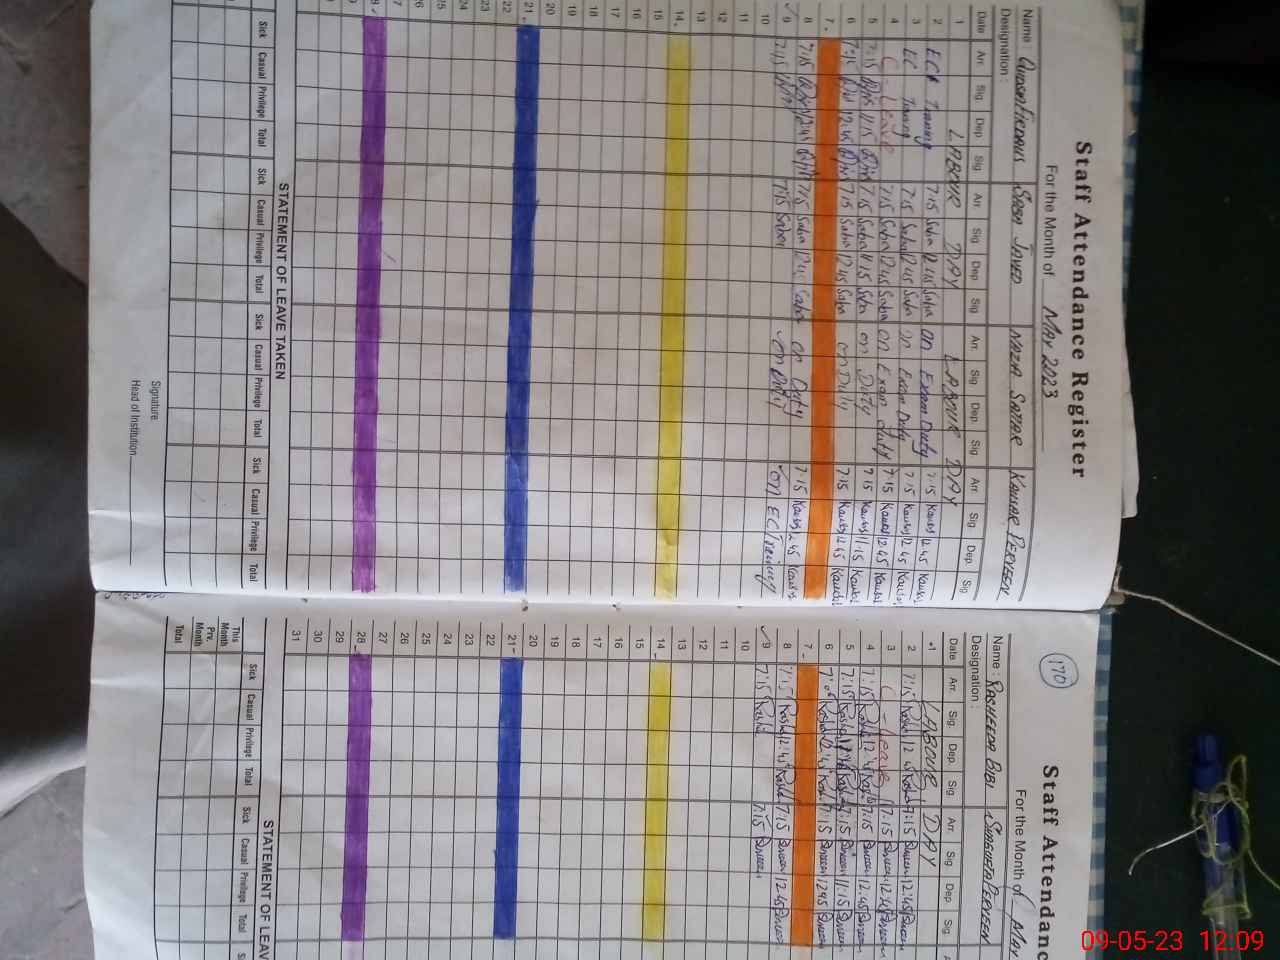 Staff Attendance Register
For the Month of MAY 2023
Name : Saba Javed NAZIA SATTAR KAUSAR PERVEEN
Designation :
Date Arr. Sig. Dep. Sig. Arr. Sig Dep Sig. Arr. Sig Dep. Sig Arr Sig Dep. Sig
1 LABOUR DAY LABOUR DAY
2 EC Training 7:15 Saba 12:45 Saba on Exam Duty 7:15 Kausar 12:45 Kausar
3 EC Training 7:15 Saba 12:45 Saba on Exam Duty 7:15 Kausar 12:45 Kausar
4 C-Leave 7:15 Saba 12:45 Saba on Exam duty 7:15 Kausar 12:45 Kausar
5 7:15 11:15 7:15 Saba 11:15 Saba on Duty 7:15 Kausar 11:15 Kausar
6 7:15 12:45 7:15 Saba 12:45 Saba on Duty 7:15 Kausar 12:45 Kausar
7
8 7:15 12:45 7:15 Saba 12:45 Saba on Duty 7:15 Kausar 12:45 Kausar
9 7:15 7:15 Saba on Duty on EC Training
10
11
12
13
14
15
16
17
18
19
20
21
22
23
24
25
26
27
28
STATEMENT OF LEAVE TAKEN
Sick Casual Privilege Total Sick Casual Privilege Total Sick Casual Privilege Total Sick Casual Privilege Total
Signature
Head of Institution
170
Staff Attendanc
For the Month of May
Name : RASHEEDA BIBI PERVEEN
Designation :
Date Arr. Sig. Dep. Sig. Arr. Sig Dep Sig.
1 LABOUR DAY
2 7:15 12:45 7:15 12:45
3 C-Leave 7:15 12:45
4 7:15 12:45 7:15 12:45
5 7:15 7:15 11:15
6 12:45 7:15 12:45
7
8 7:15 12:45 7:15 12:45
9 7:15 7:15
10
11
12
13
14
15
16
17
18
19
20
21
22
23
24
25
26
27
28
29
30
31
STATEMENT OF LEAV
Sick Casual Privilege Total Sick Casual Privilege Total
This Month
Prv. Month
Total
09-05-23 12:09